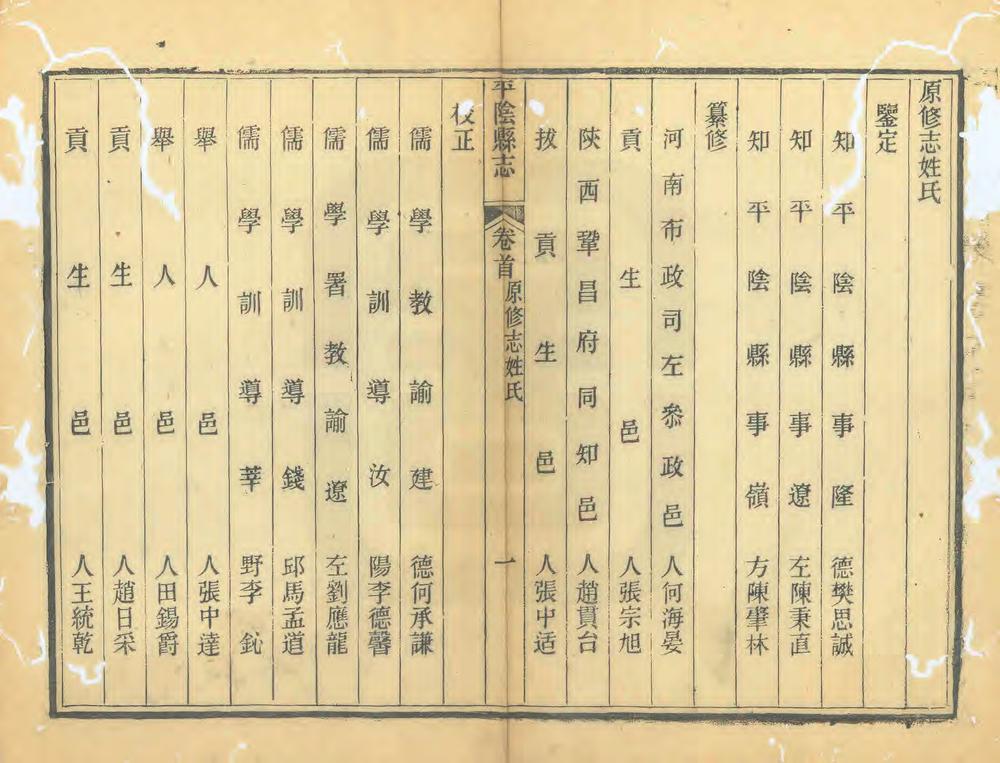 原修志姓氏
鑒定
知平陰縣事隆德樊思誠
知平陰縣事遼左陳秉直
知平陰縣事嶺方陳肇林
纂修
河南布政司左叅政邑人何海晏
貢生邑人張宗旭
陝西鞏昌府同知邑人趙貫台
拔貢生邑人張中适
平陰縣志 卷首 原修志姓氏 一
校正
儒學教諭建德何承謙
儒學訓導汝陽李德馨
儒學署教諭遼左劉應龍
儒學訓導錢邱馬孟道
儒學訓導莘野李鈊
舉人邑人張中達
舉人邑人田錫爵
貢生邑人趙日采
貢生邑人王統乾